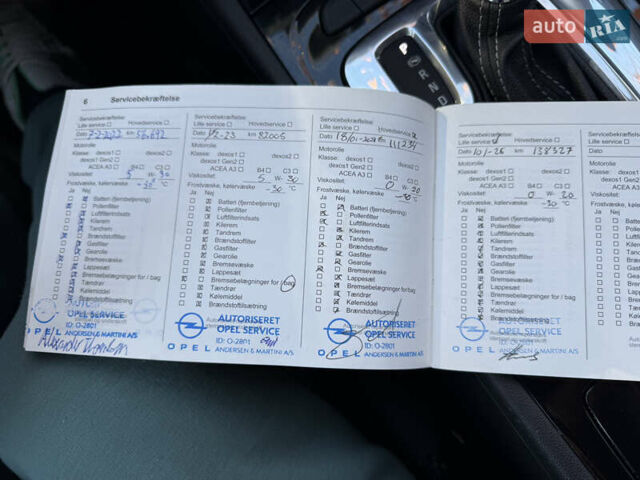 auto RIA.com
P
R
N
D
6 Servicebekræftelse
Servicebekræftelse
Lille service Hovedservice
Dato 7-2-2022 km 56.692
Motorolie
Klasse: dexos1 dexos2
dexos1 Gen2
ACEA A3 B4 C3
Viskositet: 5 W- 30
Frostvæske, kølervæske -30 °C
Ja Nej
Batteri (fjernbetjening)
Pollenfilter
Luftfilterindsats
Kilerem
Tandrem
Brændstoffilter
Gasfilter
Gearolie
Bremsevæske
Lappesæt
Bremsebelægninger for / bag
Tændrør
Kølemiddel
Brændstoftilsætning
OPEL SERVICE
ID: O-2801
OPEL ANDERSEN & MARTINI A/S
Servicebekræftelse
Lille service Hovedservice
Dato km 82005
Motorolie
Klasse: dexos1 dexos2
dexos1 Gen2
ACEA A3 B4 C3
Viskositet: 5 W- 30
Frostvæske, kølervæske -30 °C
Ja Nej
Batteri (fjernbetjening)
Pollenfilter
Luftfilterindsats
Kilerem
Tandrem
Brændstoffilter
Gasfilter
Gearolie
Bremsevæske
Lappesæt
Bremsebelægninger for / bag
Tændrør
Kølemiddel
Brændstoftilsætning
AUTORISERET
OPEL SERVICE
ID: O-2801
OPEL ANDERSEN & MARTINI A/S
Servicebekræftelse
Lille service Hovedservice
Dato km 111234
Motorolie
Klasse: dexos1 dexos2
dexos1 Gen2
ACEA A3 B4 C3
Viskositet: 0 W- 20
Frostvæske, kølervæske -30 °C
Ja Nej
Batteri (fjernbetjening)
Pollenfilter
Luftfilterindsats
Kilerem
Tandrem
Brændstoffilter
Gasfilter
Gearolie
Bremsevæske
Lappesæt
Bremsebelægninger for / bag
Tændrør
Kølemiddel
Brændstoftilsætning
AUTORISERET
OPEL SERVICE
ID: O-2801
OPEL ANDERSEN & MARTINI A/S
Servicebekræftelse
Lille service Hovedservice
Dato km 138327
Motorolie
Klasse: dexos1 dexos2
dexos1 Gen2
ACEA A3 B4 C3
Viskositet: 0 W- 20
Frostvæske, kølervæske -30 °C
Ja Nej
Batteri (fjernbetjening)
Pollenfilter
Luftfilterindsats
Kilerem
Tandrem
Brændstoffilter
Gasfilter
Gearolie
Bremsevæske
Lappesæt
Bremsebelægninger for / bag
Tændrør
Kølemiddel
Brændstoftilsætning
AUTORISERET
OPEL SERVICE
ID: O-2801
OPEL ANDERSEN & MARTINI A/S
Dato
Motorolie
Klasse:
Viskositet:
Frostvæske,
Ja Nej